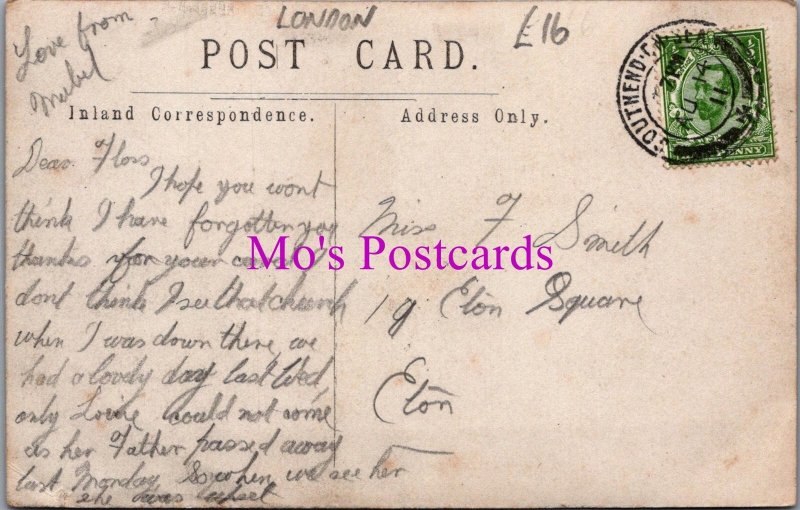 LONDON
£16
Love from
Mabel
POST CARD.
Inland Correspondence.
Address Only.
SOUTHEND
11
Dear Floss
I hope you wont
think I have forgotten you
thanks for your card I
dont think I see that church
when I was down there, we
had a lovely day last Wed,
only could not come
as her Father passed away
last Monday So when we see her
she was upset
Miss F Smith
19 Eton Square
Eton
Mo's Postcards
PENNY